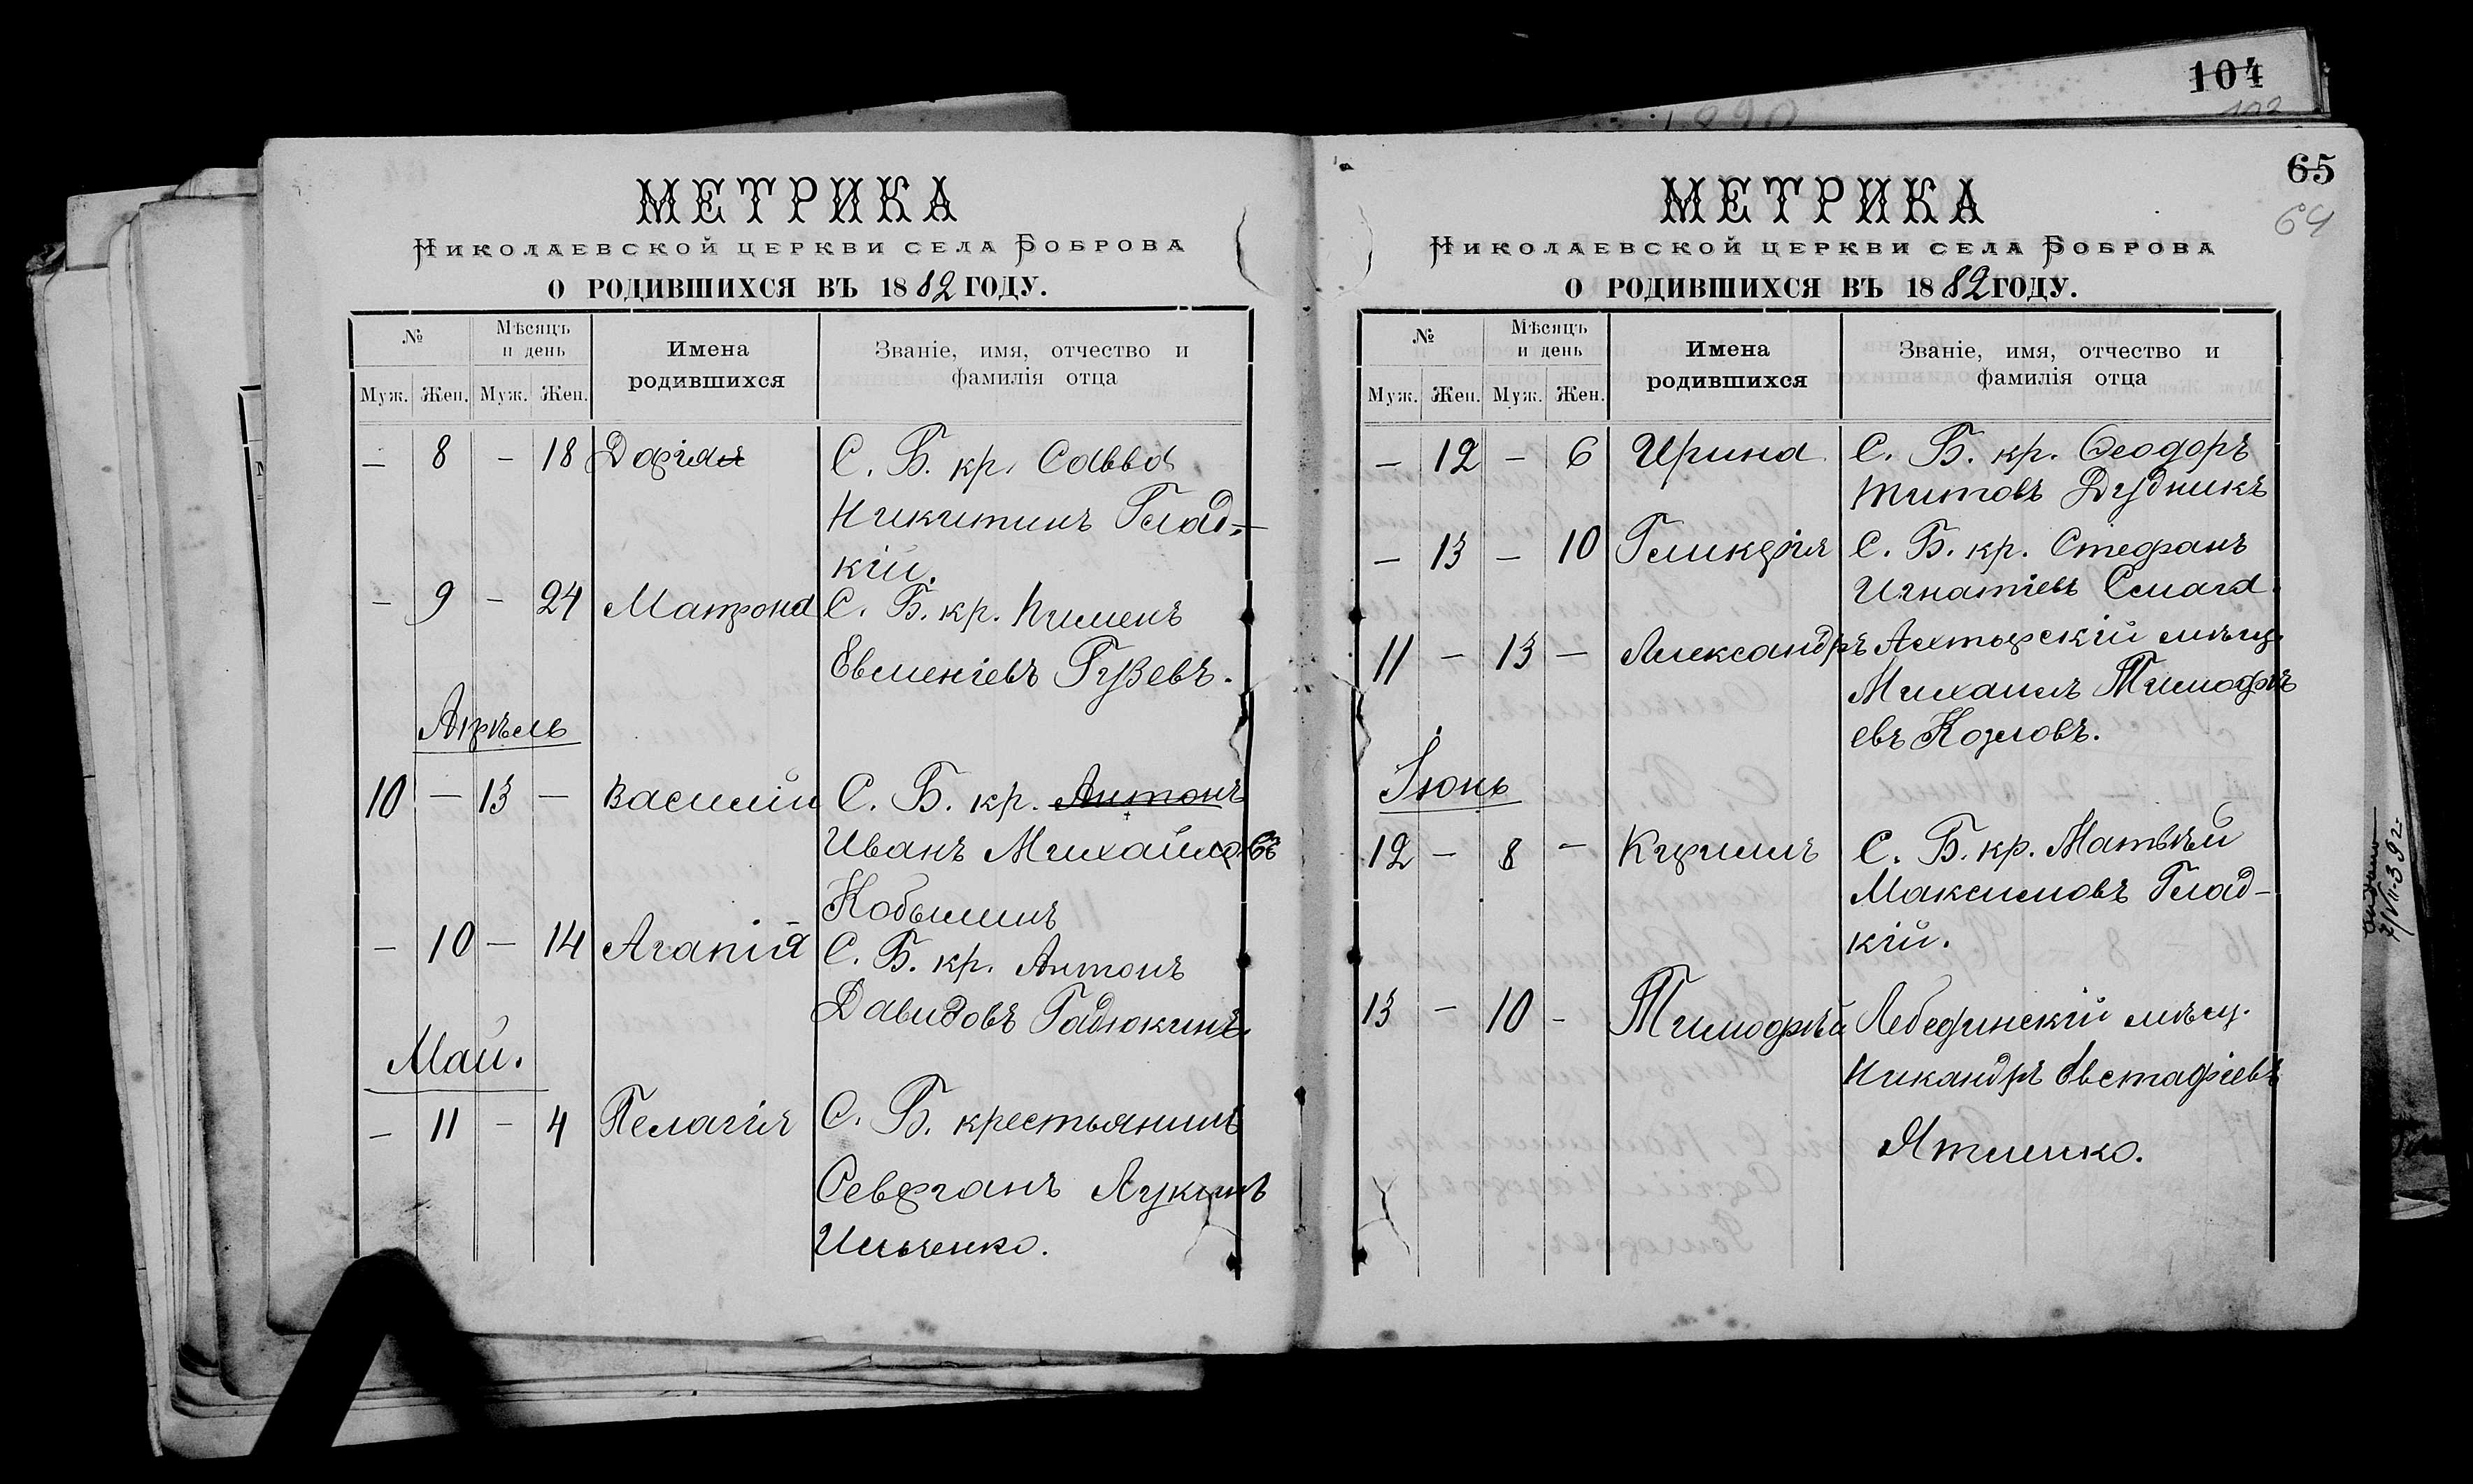 104
102
МЕТРИКА
НИКОЛАЕВСКОЙ ЦЕРКВИ СЕЛА БОБРОВА
О РОДИВШИХСЯ ВЪ 1882 ГОДУ.
№ Мѣсяцъ и день Имена родившихся Званіе, имя, отчество и фамилія отца
Муж. Жен. Муж. Жен.
— 8 — 18 Дарія С. Б. кр. Савва
Никитинъ Глад-
кій.
— 9 — 24 Матрона С. Б. кр. Пименъ
Евменіевъ Гузевъ.
Апрѣль
10 — 13 — Василій С. Б. кр. Антонъ
Иванъ Михайловъ
Кобылинъ
— 10 — 14 Агапія С. Б. кр. Антонъ
Давидовъ Гадюкинъ.
Май.
— 11 — 4 Пелагія С. Б. крестьянинъ
Севиріанъ Лукинъ
Ильченко.
65
64
МЕТРИКА
НИКОЛАЕВСКОЙ ЦЕРКВИ СЕЛА БОБРОВА
О РОДИВШИХСЯ ВЪ 1882 ГОДУ.
№ Мѣсяцъ и день Имена родившихся Званіе, имя, отчество и фамилія отца
Муж. Жен. Муж. Жен.
— 12 — 6 Ирина С. Б. кр. Ѳеодоръ
Титовъ Дудникъ
— 13 — 10 Гликерія С. Б. кр. Стефанъ
Игнатіевъ Смага.
11 — 13 — Александръ Ахтырскій мѣщ.
Михаилъ Тимофѣ
евъ Козловъ.
Іюнь
12 — 8 — Кириллъ С. Б. кр. Матвѣй
Максимовъ Глад-
кій.
13 — 10 — Тимофѣй Лебединскій мѣщ.
Никандръ Евстафіевъ
Ятленко.